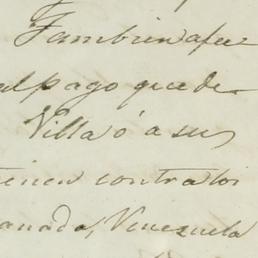 Tambien afec
al pago que de
Villa ó a sus
tienen contra los
anada, Venezuela